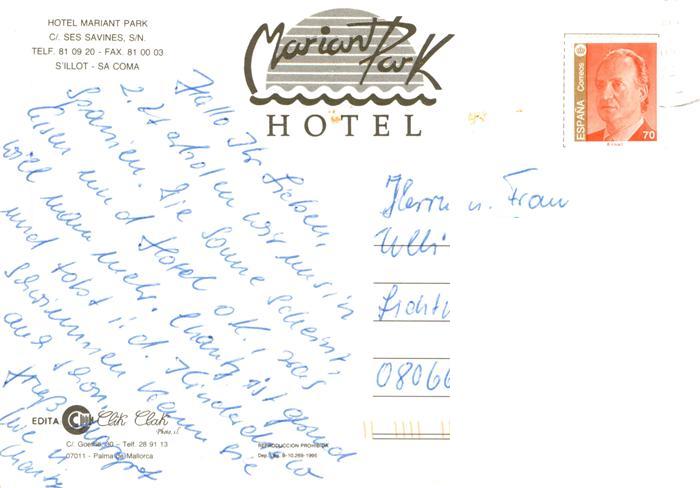 HOTEL MARIANT PARK
C/. SES SAVINES, S/N.
TELF. 81 09 20 - FAX. 81 00 03
S'ILLOT - SA COMA
Mariant Park
HOTEL
ESPAÑA Correos
70
Hallo Ihr Lieben,
z. Zt. erholen wir uns in
Spanien. Die Sonne scheint,
Essen und Hotel o.k., was
will man mehr. ist gesund
und tobt i.d. Kinderdisco
schwimmen kann sie
auch schon.
Herrn u. Frau
Ulli
08066
EDITA Clik Clak
Photo, s.l.
C/. Goethe, 30 - Telf. 28 91 13
07011 - Palma de Mallorca
REPRODUCCION PROHIBIDA
Dep. Leg. B-10.269-1995